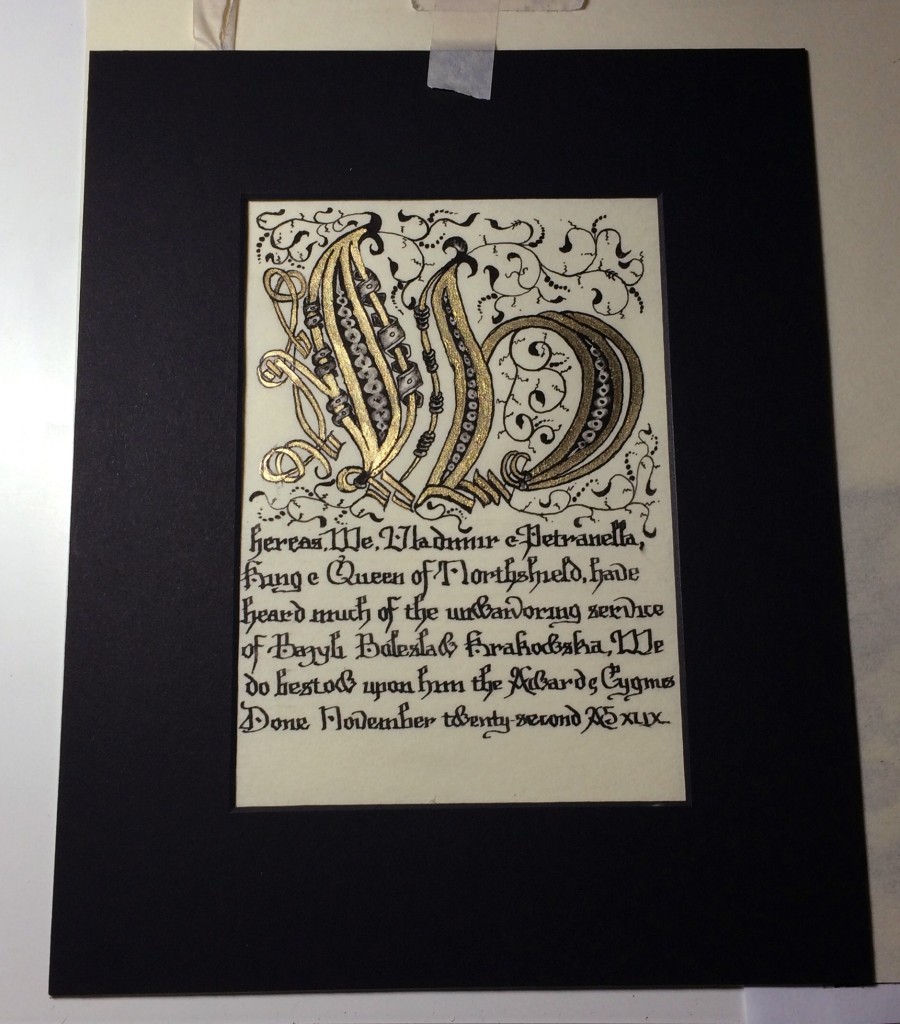 W
hereas, We, Vladimir & Petranella,
King & Queen of Northshield, have
heard much of the unwavoring service
of Bazyli Boleslaw Krakowska, We
do bestow upon him the Award Cygnus
Done November twenty-second AS XLIX